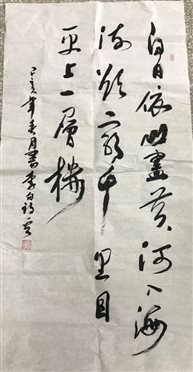 白日依山盡黃河入海
流欲窮千里目
更上一層樓
己亥年春月書李白詩